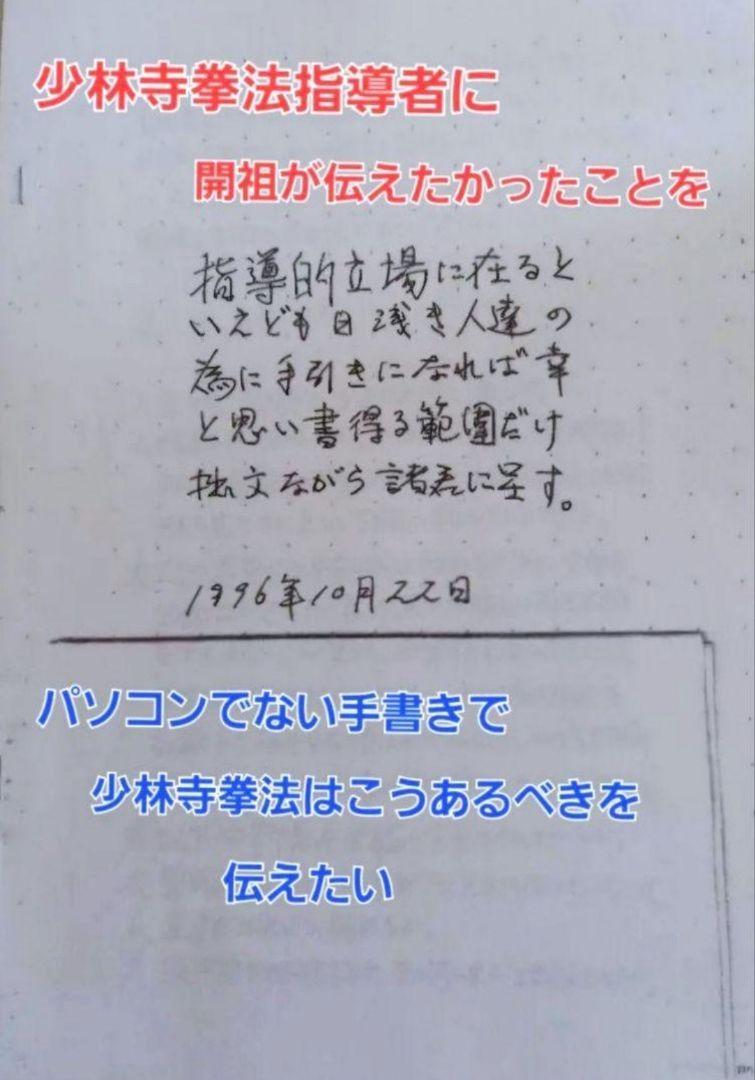 少林寺拳法指導者に
開祖が伝えたかったことを
指導的立場に在ると
いえども日浅き人達の
為に手引きになれば幸
と思い書得る範囲だけ
拙文ながら諸君に呈す。
1996年10月22日
パソコンでない手書きで
少林寺拳法はこうあるべきを
伝えたい